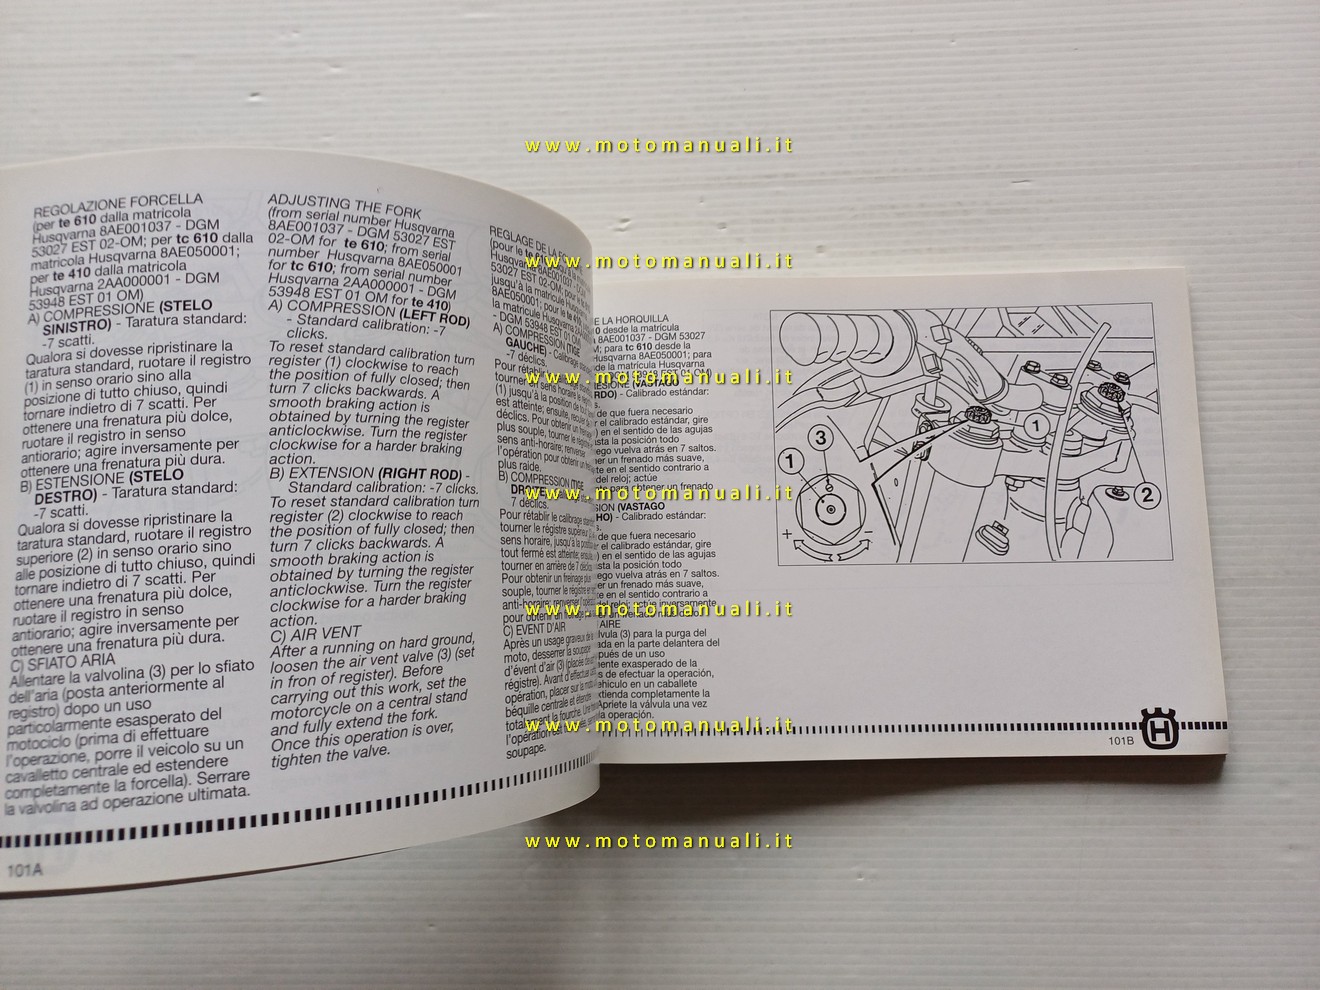 www.motomanuali.it
REGOLAZIONE FORCELLA
(per te 610 dalla matricola
Husqvarna 8AE001037 - DGM
53027 EST 02-OM; per tc 610 dalla
matricola Husqvarna 8AE050001;
per te 410 dalla matricola
Husqvarna 2AA000001 - DGM
53948 EST 01 OM)
A) COMPRESSIONE (STELO
SINISTRO) - Taratura standard:
-7 scatti.
Qualora si dovesse ripristinare la
taratura standard, ruotare il registro
(1) in senso orario sino alla
posizione di tutto chiuso, quindi
tornare indietro di 7 scatti. Per
ottenere una frenatura più dolce,
ruotare il registro in senso
antiorario; agire inversamente per
ottenere una frenatura più dura.
B) ESTENSIONE (STELO
DESTRO) - Taratura standard:
-7 scatti.
Qualora si dovesse ripristinare la
taratura standard, ruotare il registro
superiore (2) in senso orario sino
alle posizione di tutto chiuso, quindi
tornare indietro di 7 scatti. Per
ottenere una frenatura più dolce,
ruotare il registro in senso
antiorario; agire inversamente per
ottenere una frenatura più dura.
C) SFIATO ARIA
Allentare la valvolina (3) per lo sfiato
dell'aria (posta anteriormente al
registro) dopo un uso
particolarmente esasperato del
motociclo (prima di effettuare
l'operazione, porre il veicolo su un
cavalletto centrale ed estendere
completamente la forcella). Serrare
la valvolina ad operazione ultimata.
101A
ADJUSTING THE FORK
(from serial number Husqvarna
8AE001037 - DGM 53027 EST
02-OM for te 610; from serial
number Husqvarna 8AE050001
for tc 610; from serial number
Husqvarna 2AA000001 - DGM
53948 EST 01 OM for te 410)
A) COMPRESSION (LEFT ROD)
- Standard calibration: -7
clicks.
To reset standard calibration turn
register (1) clockwise to reach
the position of fully closed; then
turn 7 clicks backwards. A
smooth braking action is
obtained by turning the register
anticlockwise. Turn the register
clockwise for a harder braking
action.
B) EXTENSION (RIGHT ROD) -
Standard calibration: -7 clicks.
To reset standard calibration turn
register (2) clockwise to reach
the position of fully closed; then
turn 7 clicks backwards. A
smooth braking action is
obtained by turning the register
anticlockwise. Turn the register
clockwise for a harder braking
action.
C) AIR VENT
After a running on hard ground,
loosen the air vent valve (3) (set
in fron of register). Before
carrying out this work, set the
motorcycle on a central stand
and fully extend the fork.
Once this operation is over,
tighten the valve.
REGLAGE DE LA
(pour le
Husqvarna 8AE001037 - DGM
53027 EST 02-OM; pour le
jusqu'à la matricule Husqvarna
8AE050001; pour le
la matricule Husqvarna
- DGM 53948 EST 01 OM
A) COMPRESSION (TIGE
GAUCHE) - Calibrage
-7 déclics.
Pour rétablir le calibrage
tourner en sens horaire le
(1) jusqu'à la position de
est atteinte; ensuite, reculer de
déclics. Pour obtenir un
plus souple, tourner le registre
sens anti-horaire; renverser
l'opération pour obtenir un
plus raide.
B) COMPRESSION (TIGE
7 déclics.
Pour rétablir le calibrage
tourner le régistre supérieur
sens horaire, jusqu'à la
tout fermé est atteinte;
tourner en arrière de 7
Pour obtenir un freinage plus
souple, tourner le régistre
anti-horaire; renverser l'opération
pour obtenir un
C) EVENT D'AIR
Après un usage graveux de
moto, desserrer la soupape
d'évent d'air (3) (placée
régistre). Avant d'effectuer
opération, placer sur
béquille centrale et
la fourche.
soupape.
LA HORQUILLA
desde la matrícula
8AE001037 - DGM 53027
para tc 610 desde la
Husqvarna 8AE050001; para
de la matrícula Husqvarna
(VASTAGO
- Calibrado estándar:
de que fuera necesario
el calibrado estándar, gire
en el sentido de las agujas
la posición todo
vuelva atrás en 7 saltos.
un frenado más suave,
en el sentido contrario a
del reloj; actúe
para obtener un frenado
(VASTAGO
- Calibrado estándar:
de que fuera necesario
el calibrado estándar, gire
en el sentido de las agujas
la posición todo
vuelva atrás en 7 saltos.
un frenado más suave,
en el sentido contrario a
inversamente
AIRE
(3) para la purga del
en la parte delantera del
de un uso
exasperado de la
de efectuar la operación,
en un caballete
completamente la
Apriete la válvula una vez
la operación.
1
3
1
2
+
-
101B
H
www.motomanuali.it
www.motomanuali.it
www.motomanuali.it
www.motomanuali.it
www.motomanuali.it
www.motomanuali.it